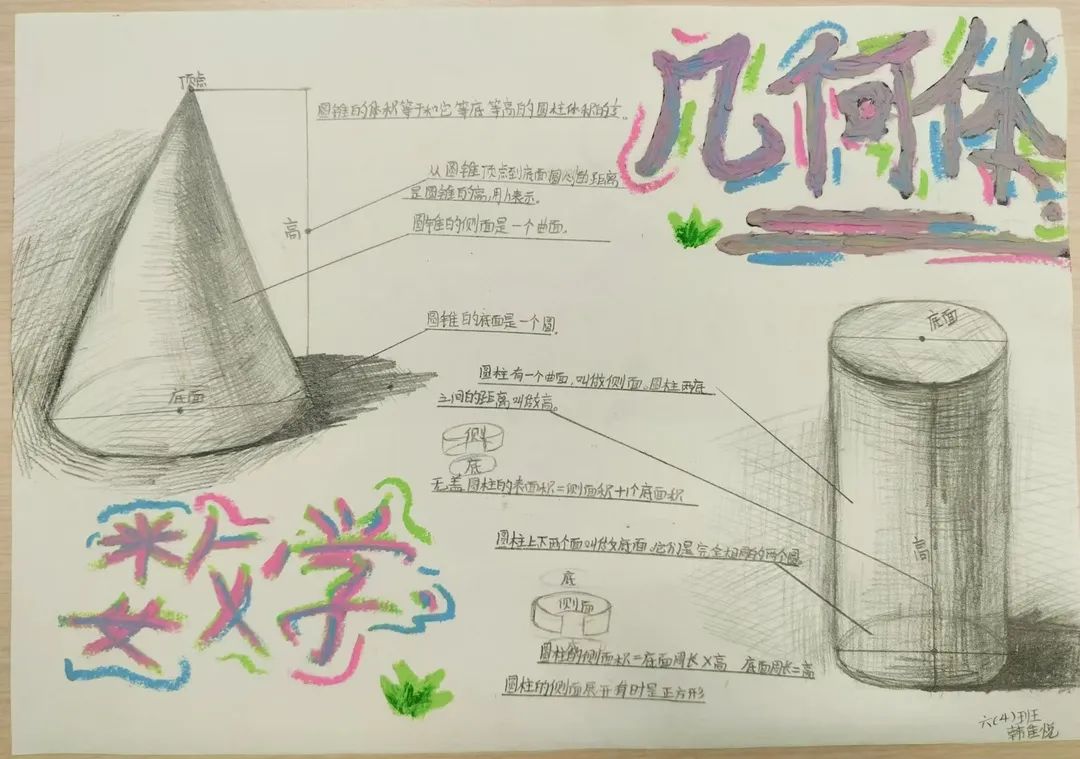 几何体
顶点
圆锥的体积等于和它等底等高的圆柱体积的⅓。
从圆锥顶点到底面圆心的距离
是圆锥的高,用h表示。
高
圆锥的侧面是一个曲面。
圆锥的底面是一个圆。
底面
底面
圆柱有一个曲面,叫做侧面。圆柱两底
之间的距离叫做高。
侧
底
无盖圆柱的表面积=侧面积+1个底面积
圆柱上下两个面叫做底面,它们是完全相同的两个圆
高
底
侧面
圆柱的侧面积=底面周长×高 底面周长=高
圆柱的侧面展开有时是正方形
数学
六(4)班
韩佳悦